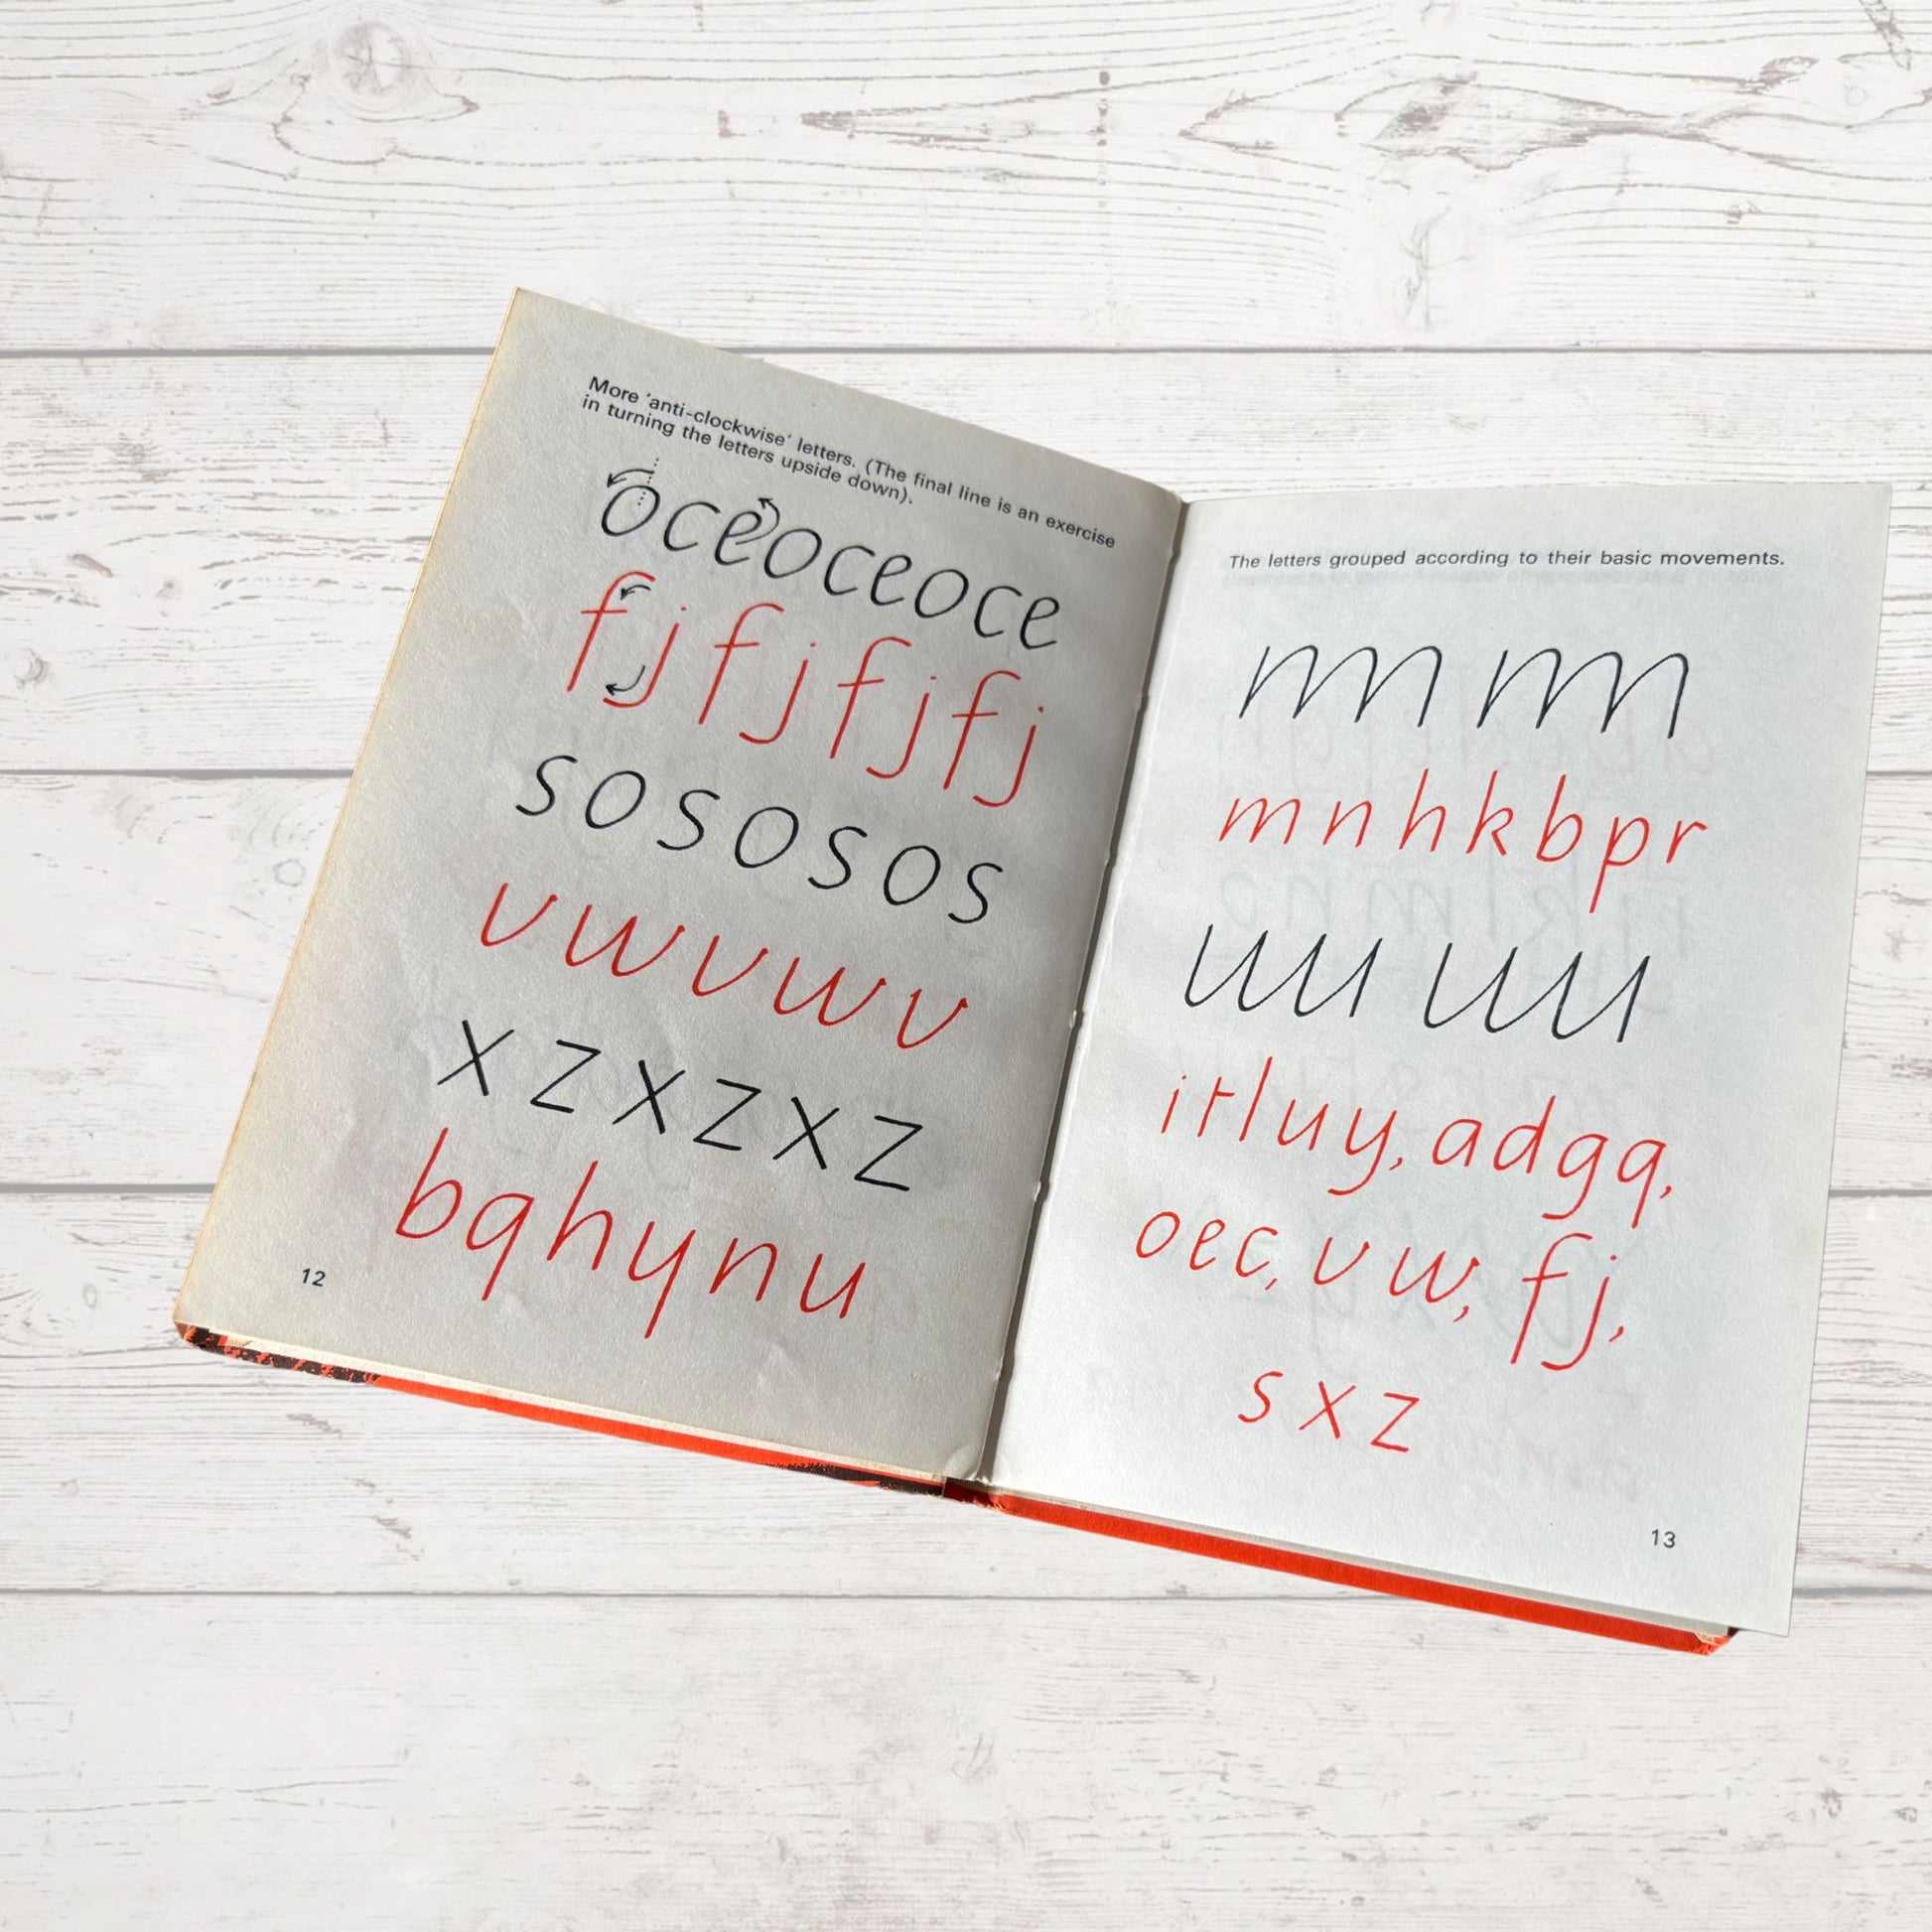 More 'anti-clockwise' letters. (The final line is an exercise
in turning the letters upside down).
oceoceoce
fjfjfjfj
sososos
vwvwv
xzxzxz
bqhynu
12
The letters grouped according to their basic movements.
m m
mnhkbpr
uu uu
itluy, adgq,
oec, vw, fj,
sxz
13